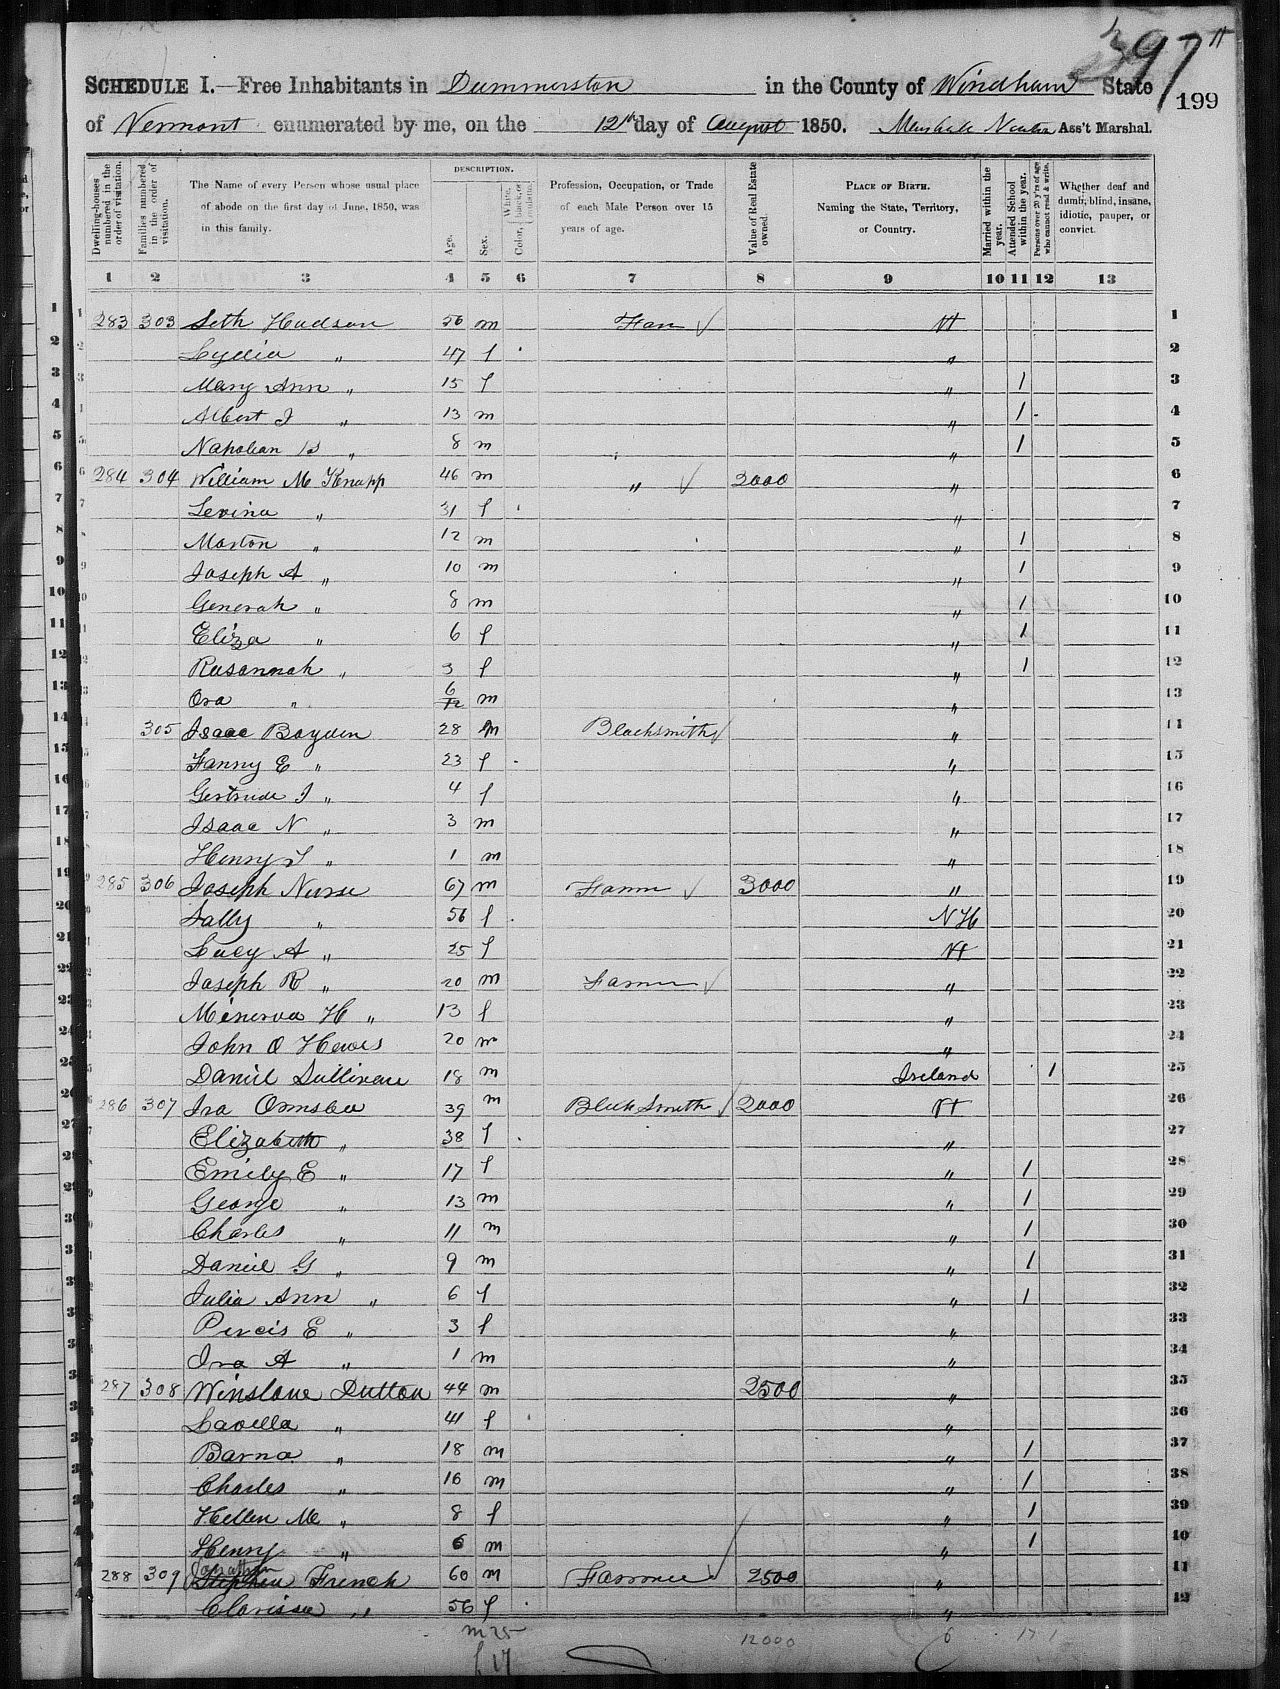 397
199
SCHEDULE I.—Free Inhabitants in Dummerston in the County of Windham State
of Vermont enumerated by me, on the 12th day of August 1850. Marshall Newton Ass't Marshal.
Dwelling-houses numbered in the order of visitation.
Families numbered in the order of visitation.
The Name of every Person whose usual place of abode on the first day of June, 1850, was in this family.
DESCRIPTION.
Age.
Sex.
Color, White, black, or mulatto.
Profession, Occupation, or Trade of each Male Person over 15 years of age.
Value of Real Estate owned.
PLACE OF BIRTH. Naming the State, Territory, or Country.
Married within the year.
Attended School within the year.
Persons over 20 y'rs of age who cannot read & write.
Whether deaf and dumb, blind, insane, idiotic, pauper, or convict.
1 2 3 4 5 6 7 8 9 10 11 12 13
1 283 303 Seth Hudson 56 m Far Vt 1
2 Lydia " 47 f " 2
3 Mary Ann " 15 f " 1 3
4 Albert J " 13 m " 1 4
5 Napolean B " 8 m " 1 5
6 284 304 William M Knapp 46 m " 3000 " 6
7 Levina " 31 f " 7
8 Marton " 12 m " 1 8
9 Joseph A " 10 m " 1 9
10 Generah " 8 m " 1 10
11 Eliza " 6 f " 1 11
12 Rusannah " 3 f " 1 12
13 Ora " 6/12 m " 13
14 305 Isaac Boyden 28 m Blacksmith " 14
15 Fanny E " 23 f " 15
16 Gertrude I " 4 f " 16
17 Isaac N " 3 m " 17
18 Henry T " 1 m " 18
19 285 306 Joseph Nurse 67 m Farmer 3000 " 19
20 Sally " 56 f N H 20
21 Lucy A " 25 f Vt 21
22 Joseph R " 20 m Farmer " 22
23 Minerva H " 13 f " 23
24 John O Hewes 20 m " 24
25 Daniel Sullivan 18 m Ireland 1 25
26 286 307 Ira Ormsbee 39 m Black Smith 2000 Vt 26
27 Elizabeth " 38 f " 27
28 Emily E " 17 f " 1 28
29 George " 13 m " 1 29
30 Charles " 11 m " 1 30
31 Daniel G " 9 m " 1 31
32 Julia Ann " 6 f " 1 32
33 Percis E " 3 f " 33
34 Ira A " 1 m " 34
35 287 308 Winslow Dutton 44 m 2500 " 35
36 Lavella " 41 f " 36
37 Barna " 18 m " 1 37
38 Charles " 16 m " 1 38
39 Hellen M " 8 f " 1 39
40 Henry " 6 m " 1 40
41 288 309 Jonathan Stephen French 60 m Farmer 2500 " 41
42 Clarissa " 56 f " 42
m 25 12000 6 17 1
f 17